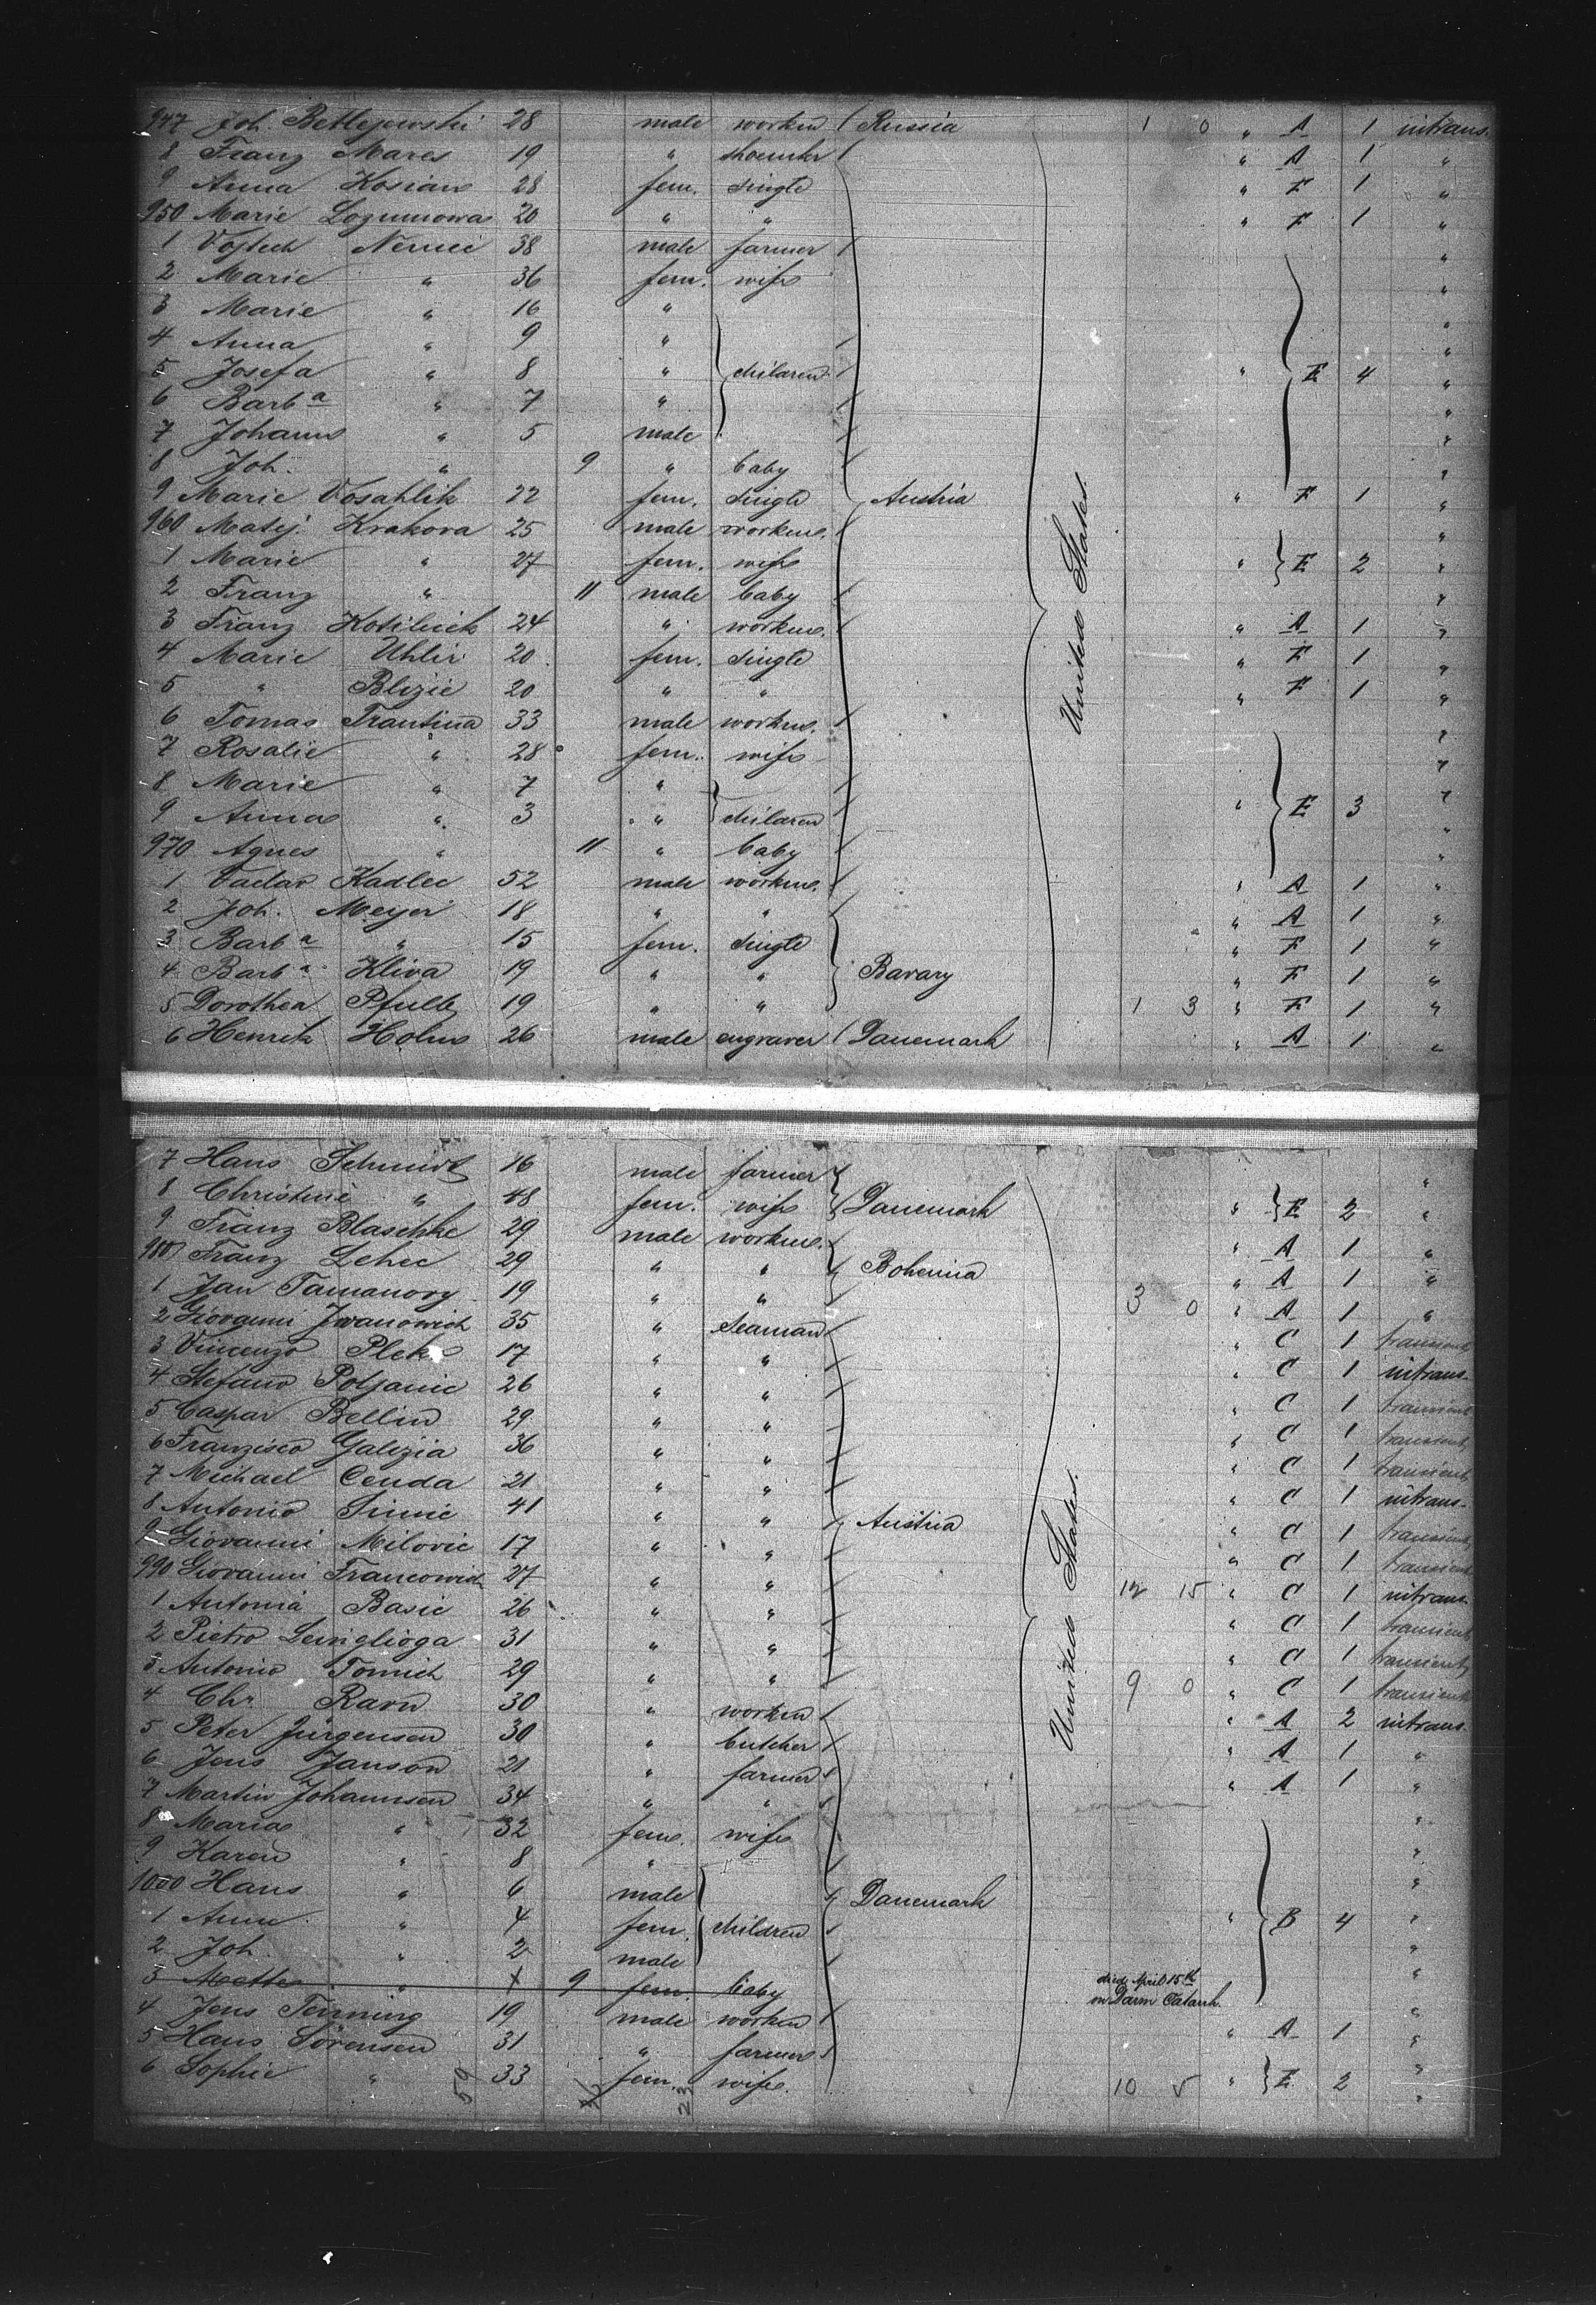 947 Joh. Betlejewski 28 male workm. Russia 1 0 " A 1 intrans.
8 Franz Mares 19 " shoemkr " A 1 "
9 Anna Kosian 28 fem. single " F 1 "
950 Marie Lozumowa 20 " " " F 1 "
1 Vojtech Nemec 38 male farmer "
2 Marie " 36 fem. wife "
3 Marie " 16 " "
4 Anna " 9 " "
5 Josefa " 8 " children " E 4 "
6 Barb a " 7 " "
7 Johann " 5 male "
8 Joh. " 9 " baby "
9 Marie Vosahlik 22 fem. single Austria " F 1 "
960 Matej. Krakova 25 male workm. "
1 Marie " 27 fem. wife " E 2 "
2 Franz " 11 male baby "
3 Franz 24 " workm. " A 1 "
4 Marie Uhlir 20 fem. single " F 1 "
5 " Blizie 20 " " " F 1 "
6 Tomas Trantina 33 male workm. "
7 Rosalie " 28 fem. wife "
8 Marie " 7 " "
9 Anna " 3 " children " E 3 "
970 Agnes " 11 " baby "
1 Vaclav Kadlec 52 male workm. " A 1 "
2 Joh. Meyer 18 " " " A 1 "
3 Barb a " 15 fem. single " F 1 "
4 Barb a Kliva 19 " " Bavary " F 1 "
5 Dorothea 19 " " 1 3 " F 1 "
6 Henrik Holm 26 male engraver Danemark " A 1 "
United States.
7 Hans Schmidt 16 male farmer "
8 Christine " 48 fem. wife Danemark " E 2 "
9 Franz Blaschke 29 male workm. " A 1 "
980 Franz Lehec 29 " " Bohemia " A 1 "
1 Jan Tamanovy 19 " " 3 0 " A 1 "
2 Giovanni Ivanowich 35 " seaman " C 1 transient
3 Vincenzo 17 " " " C 1 intrans.
4 Stefano Poljanic 26 " " " C 1 transient
5 Caspar Bellin 29 " " " C 1 transient
6 Franzisco Galizia 36 " " " C 1 transient
7 Michael Cenda 21 " " " C 1 intrans.
8 Antonio Simic 41 " " Austria " C 1 transient
9 Giovanni Milovic 17 " " " C 1 transient
990 Giovanni Francowich 27 " " 12 15 " C 1 intrans.
1 Antonia Basic 26 " " " C 1 transient
2 Pietro 31 " " " C 1 transient
3 Antonio Tomich 29 " " 9 0 " C 1 transient
4 Chr. Ravn 30 " workm " A 2 intrans.
5 Peter Jürgensen 30 " butcher " A 1 "
6 Jens Janson 21 " farmer " A 1 "
7 Martin Johannsen 34 " " "
8 Maria " 32 fem. wife "
9 Karen " 8 " "
1000 Hans " 6 male Danemark "
1 Anne " 4 fem. children " B 4 "
2 Joh. " 2 male "
3 Mette " 9 fem. baby died April 15th "
on Darm Catarrh.
4 Jens Tenning 19 male workm " A 1 "
5 Hans Sörensen 31 " farmer "
6 Sophie " 33 fem. wife 10 5 " E 2 "
United States.
59
23